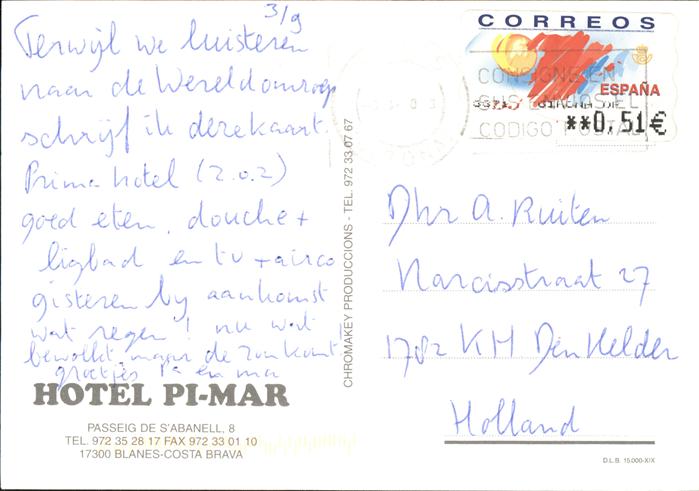 3/9
Terwijl we luisteren
naar de Wereldomroep
schrijf ik deze kaart.
Prima hotel (z.o.z)
goed eten, douche +
ligbad en tv + airco
gisteren by aankomst
wat regen! nu wat
bewolkt maar de zon komt
groetjes pa en ma
HOTEL PI-MAR
PASSEIG DE S'ABANELL, 8
TEL. 972 35 28 17 FAX 972 33 01 10
17300 BLANES-COSTA BRAVA
CHROMAKEY PRODUCCIONS - TEL. 972 33 07 67
CORREOS
ESPAÑA
**0,51€
CONSIGNE EN
SUS ENVIOS EL
CODIGO POSTAL
Dhr A. Ruiten
Narcisstraat 27
1782 KH Den Helder
Holland
D.L.B. 15.000-XIX